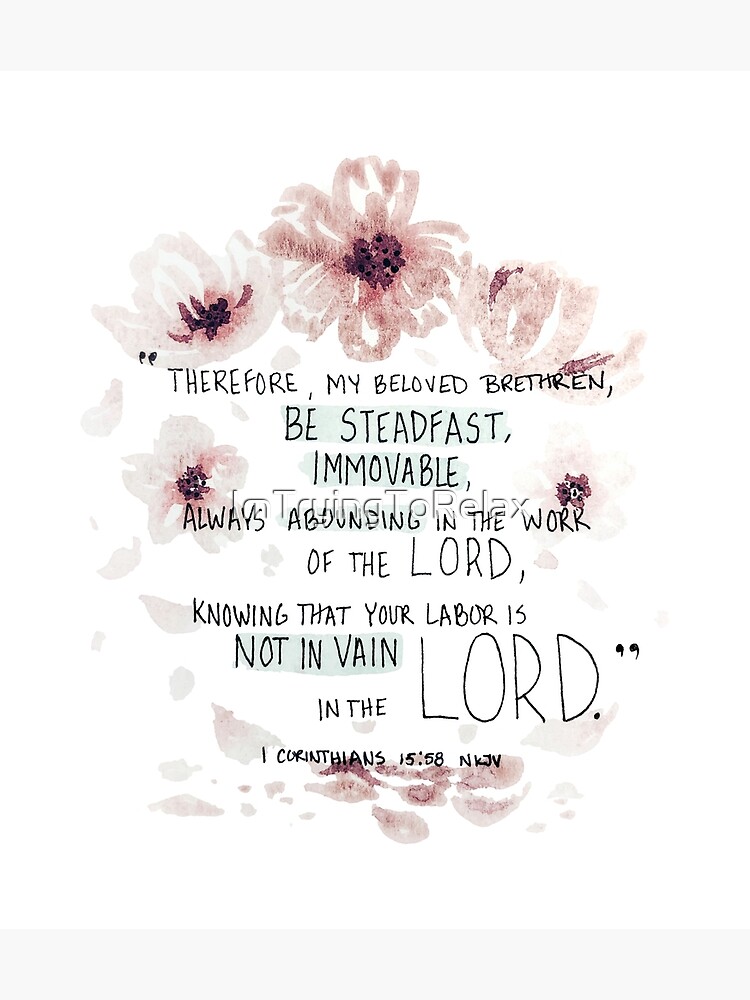 "THEREFORE, MY BELOVED BRETHREN,
BE STEADFAST,
IMMOVABLE,
ImTryingToRelax
ALWAYS ABOUNDING IN THE WORK
OF THE LORD,
KNOWING THAT YOUR LABOR IS
NOT IN VAIN
IN THE LORD."
1 CORINTHIANS 15:58 NKJV